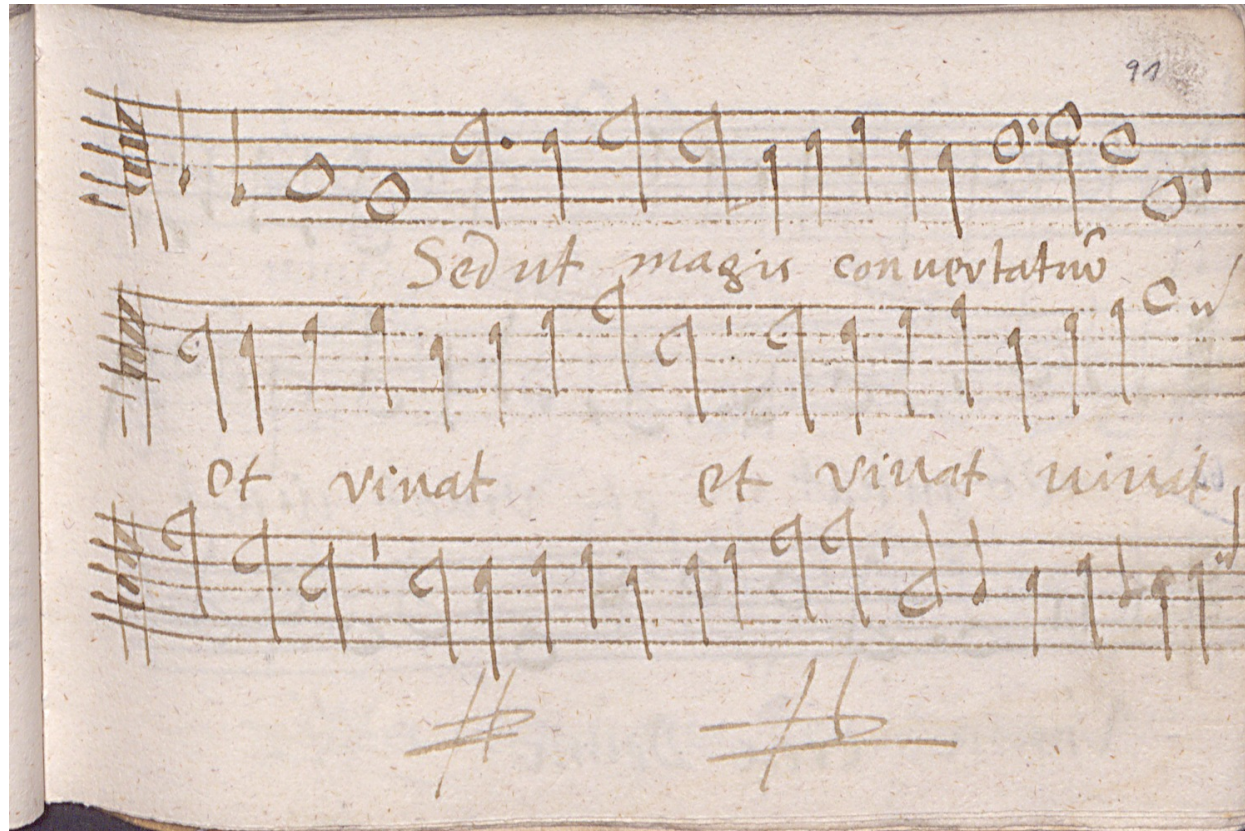 91
Sed ut magis convertatur
et vivat et vivat vivat